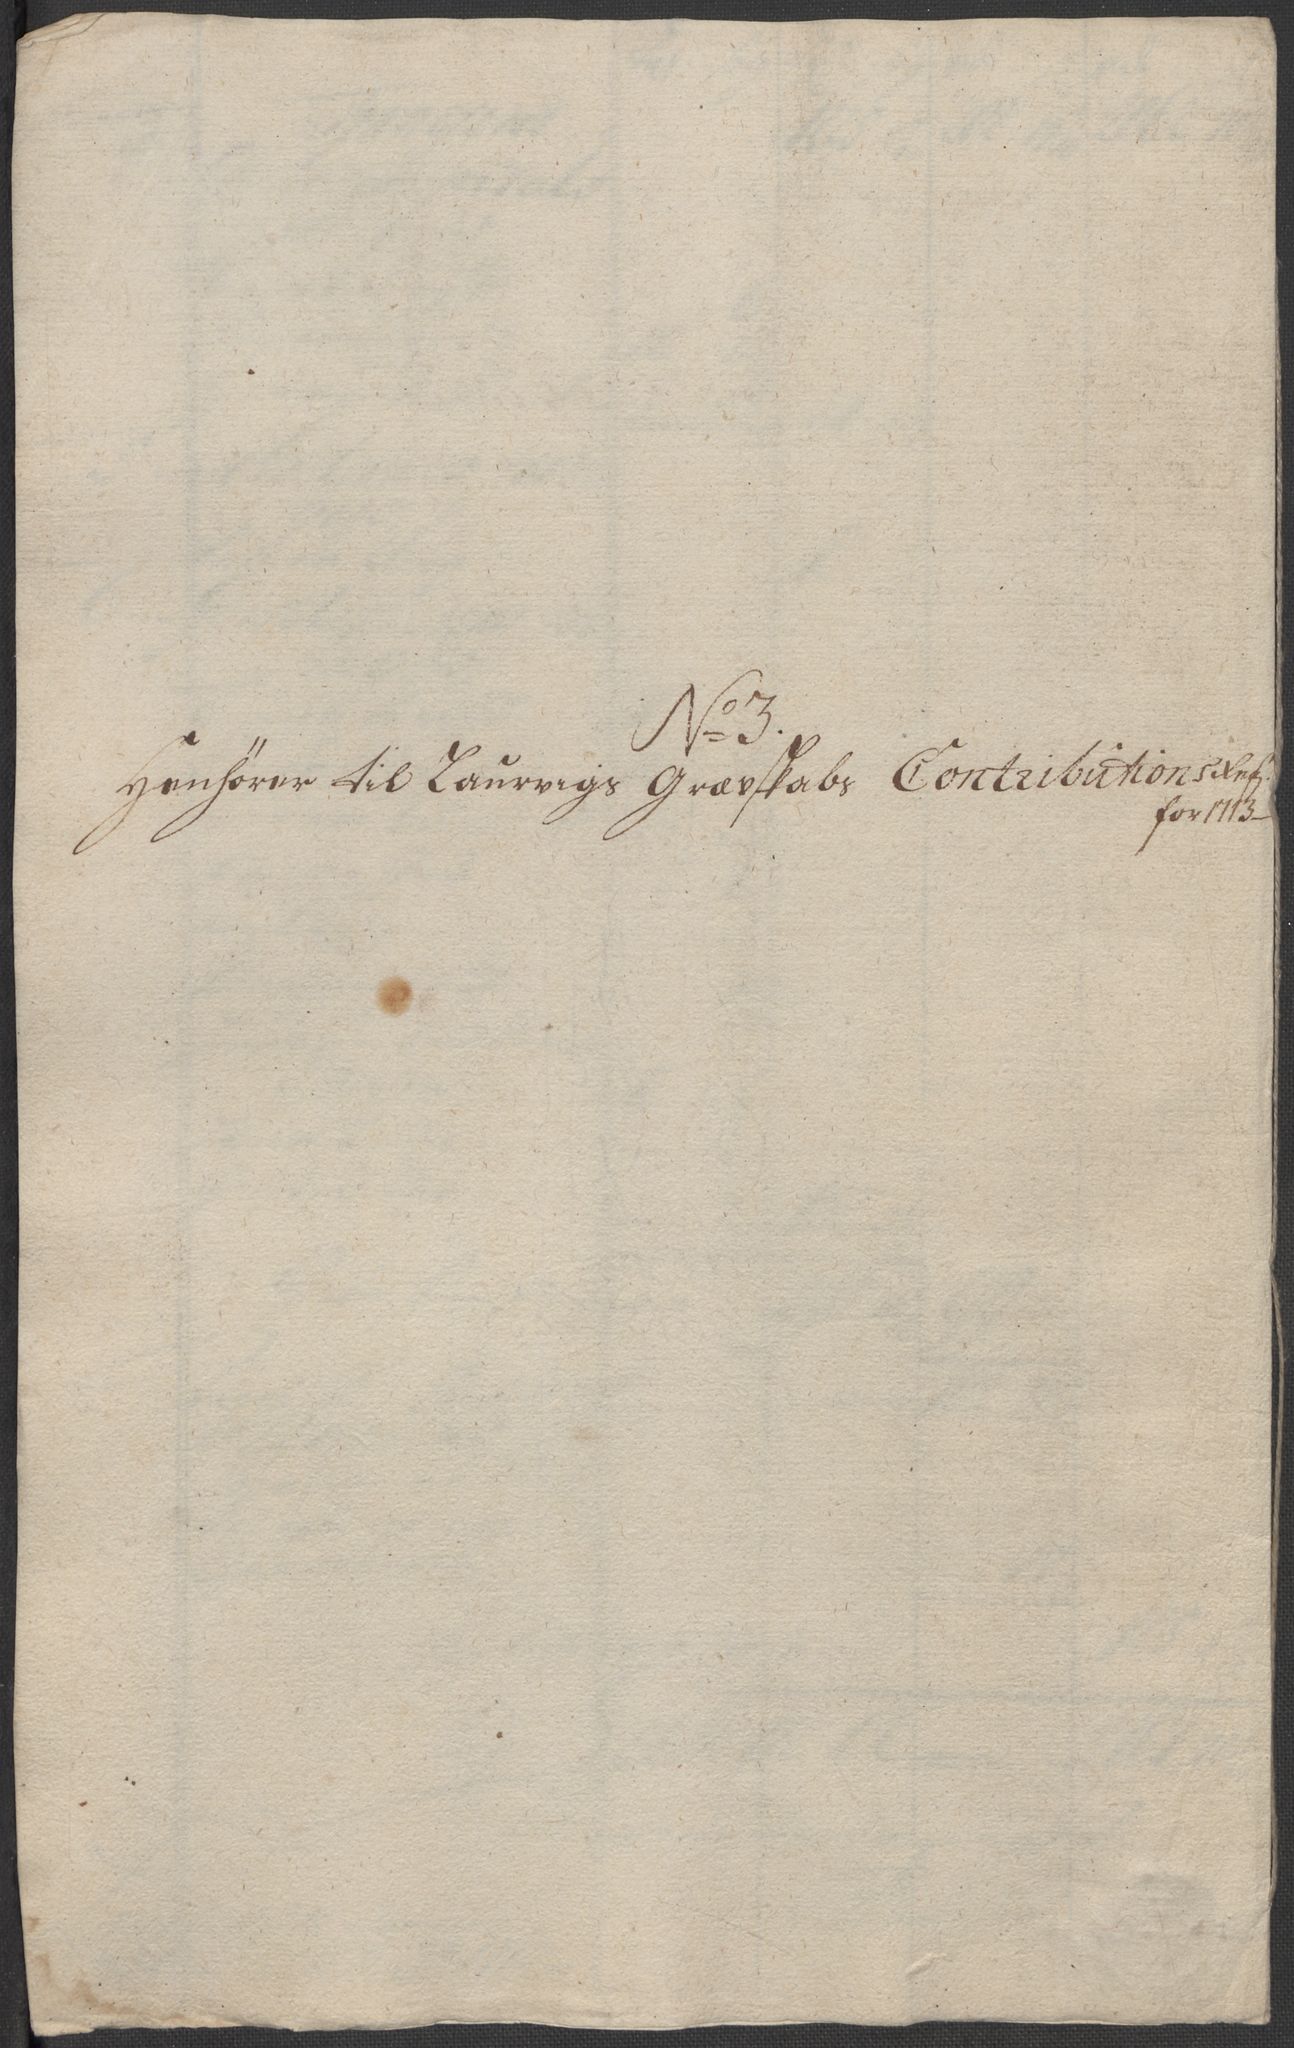 No 3.
Henhörer til Laurvigs Græfskabs Contributions
for 1713